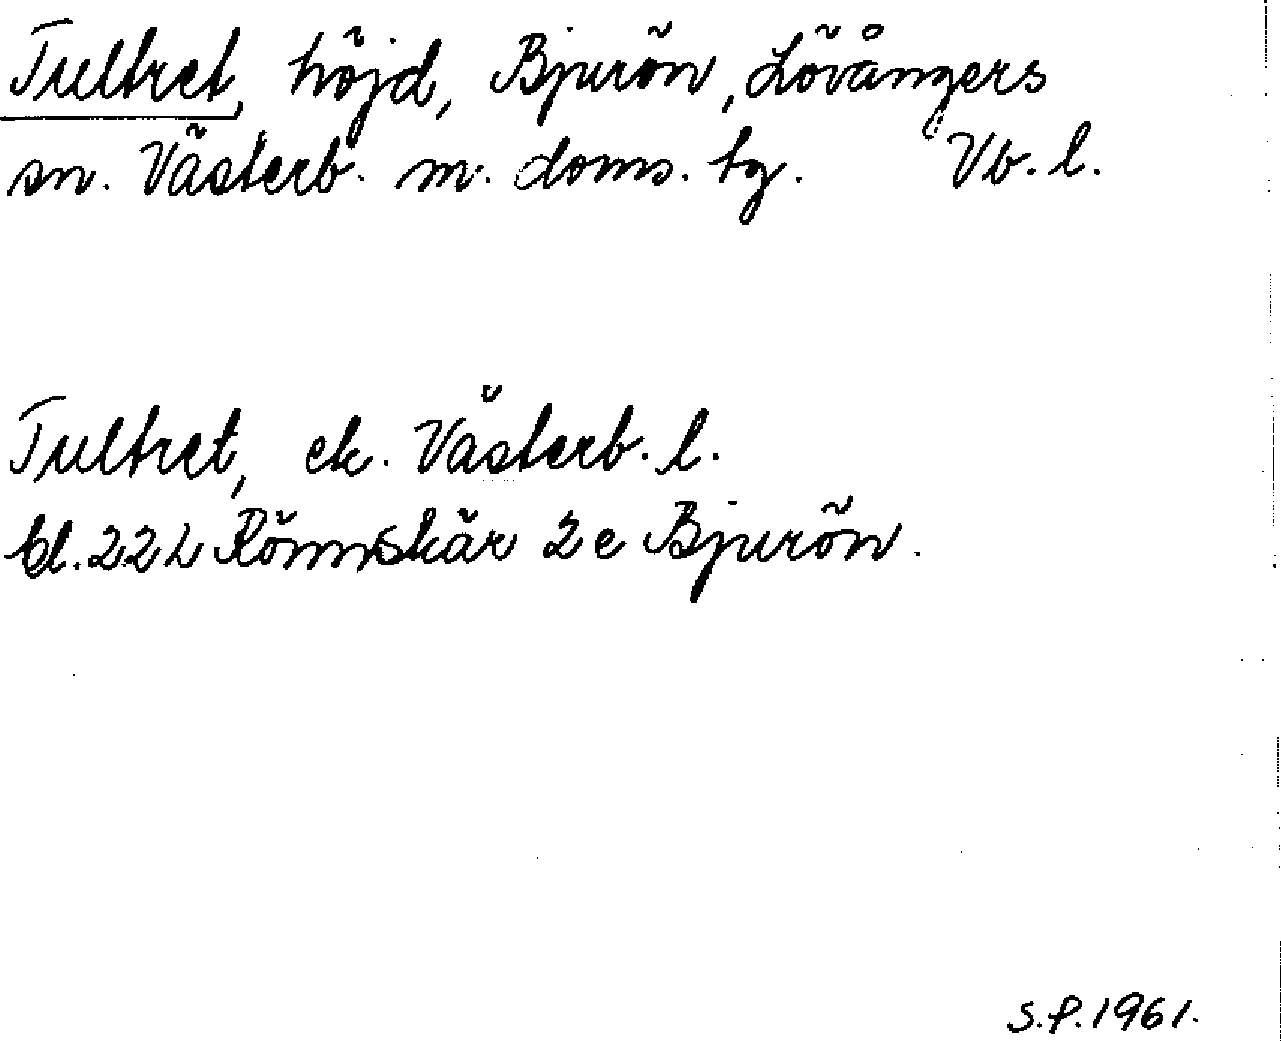 Tultret, höjd, Bjurön, Lövångers
sn. Västerb. m. doms. tg. Vb. l.
Tultret, ek. Västerb. l.
bl. 22 L Rönnskär 2e Bjurön.
S.P. 1961.